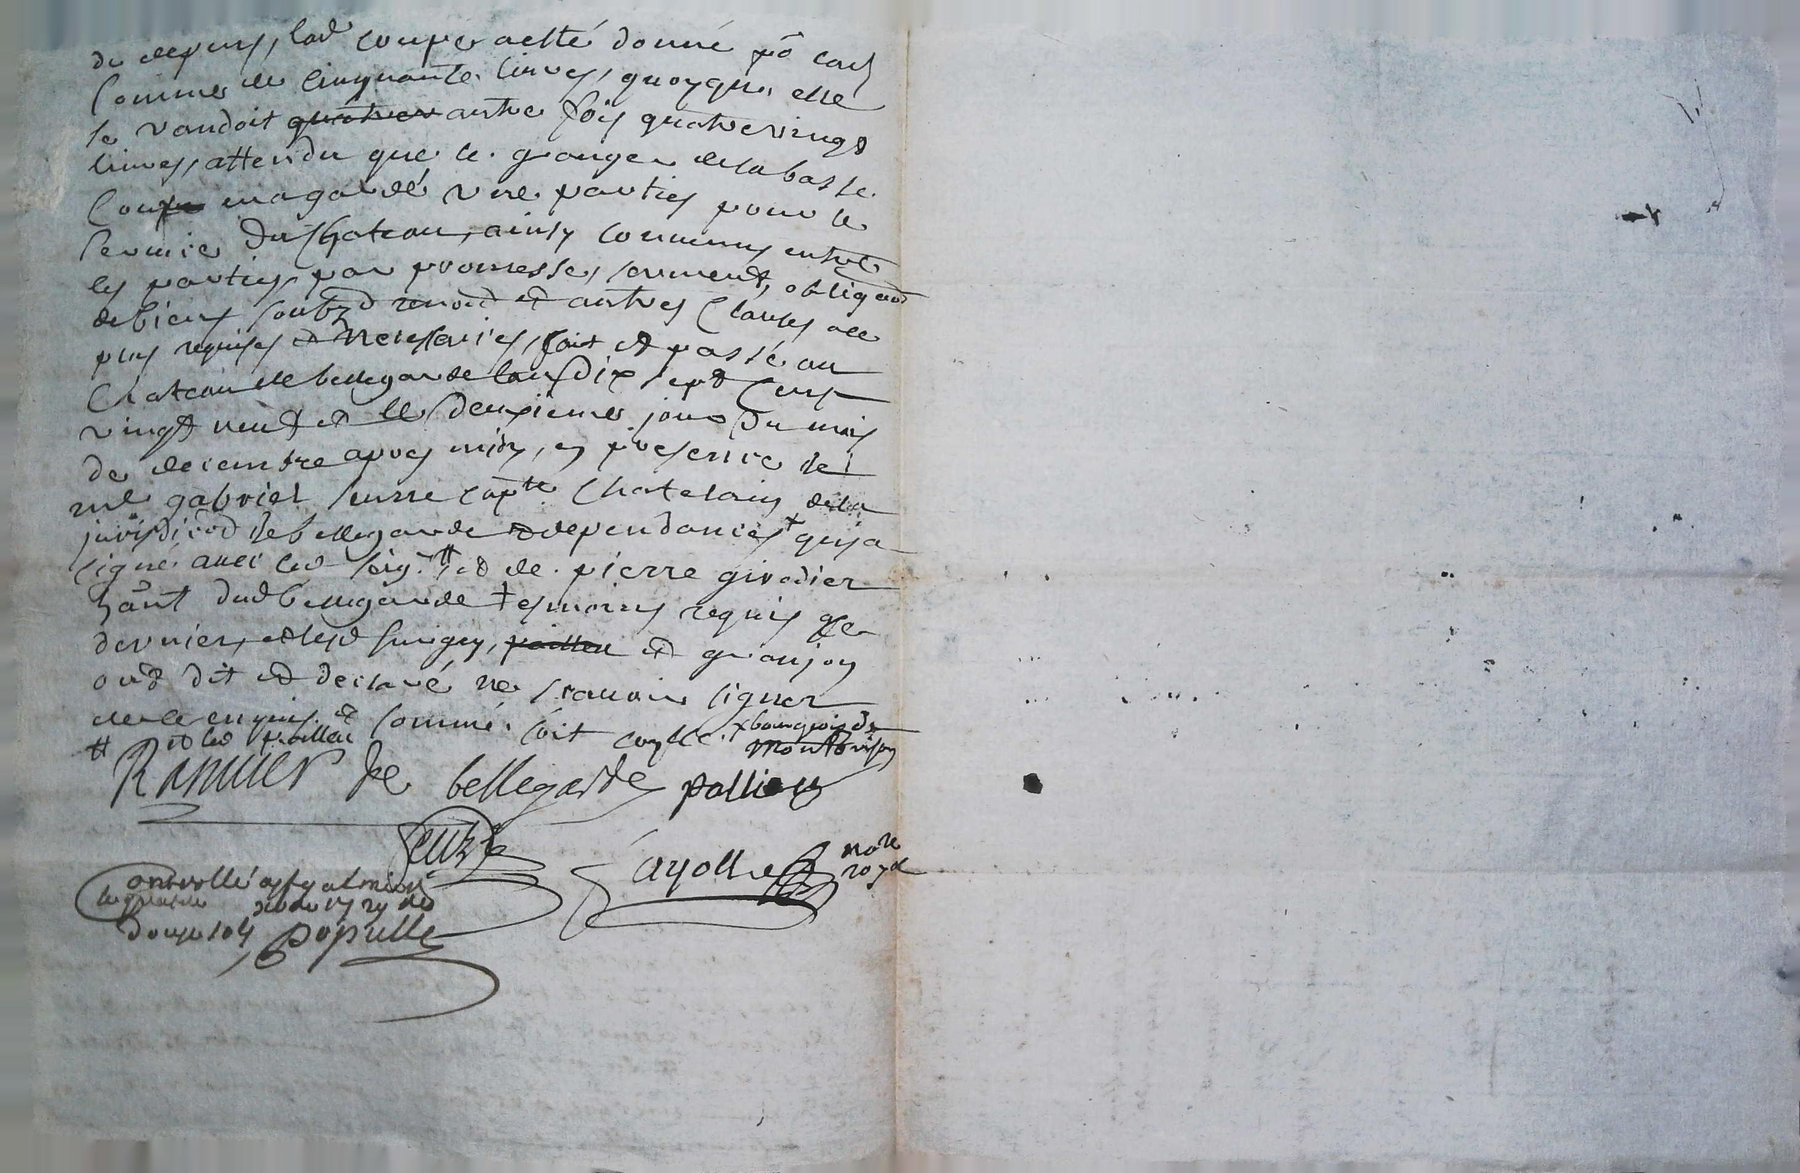 de depens, lad coupe a esté donné po lad
somme de cinquante livres, quoyque elle
se vandoit quatre autre fois quatrevingt
livres, attendu que le granger de la basse
Cour en a gardé une parties pour le
service du chateau, ainsy convenus entre
les parties par promesses, serment, obligaon
de biens soubz et renond et autres clauses a ce
plus requises et necessaries, fait et passé au
Chateau de bellegarde l'an dix sept cent
vingt neuf et le deuxieme jour du mois
de decembre apres midy, en presence de
me gabriel seurre capne Chatelain de la
jurisdicod de bellegarde et dependances + qui a
signé avec led seigr # et de pierre girodier
hant dud bellegarde tesmoins requis ce
dernier, et led et granjon
ont dit et declaré ne scavoir signer
de ce enquis et sommé. soit x bourgeois de
# et led pailleu montbrison
Ramier de bellegarde pallieu
seurre
fayolle nore
royal
Controllé a st galmier
le decembre 1729 reçu
douze sols populle